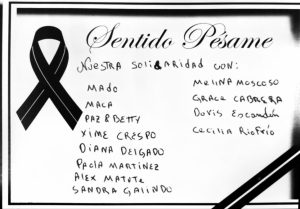 Sentido Pésame
Nuestra solidaridad con:
Mado
Maca
Paz & Betty
Xime Crespo
Diana Delgado
Paola Martinez
Alex Matute
Sandra Galindo
Melina Moscoso
Grace Cabrera
Doris Escandón
Cecilia Riofrío